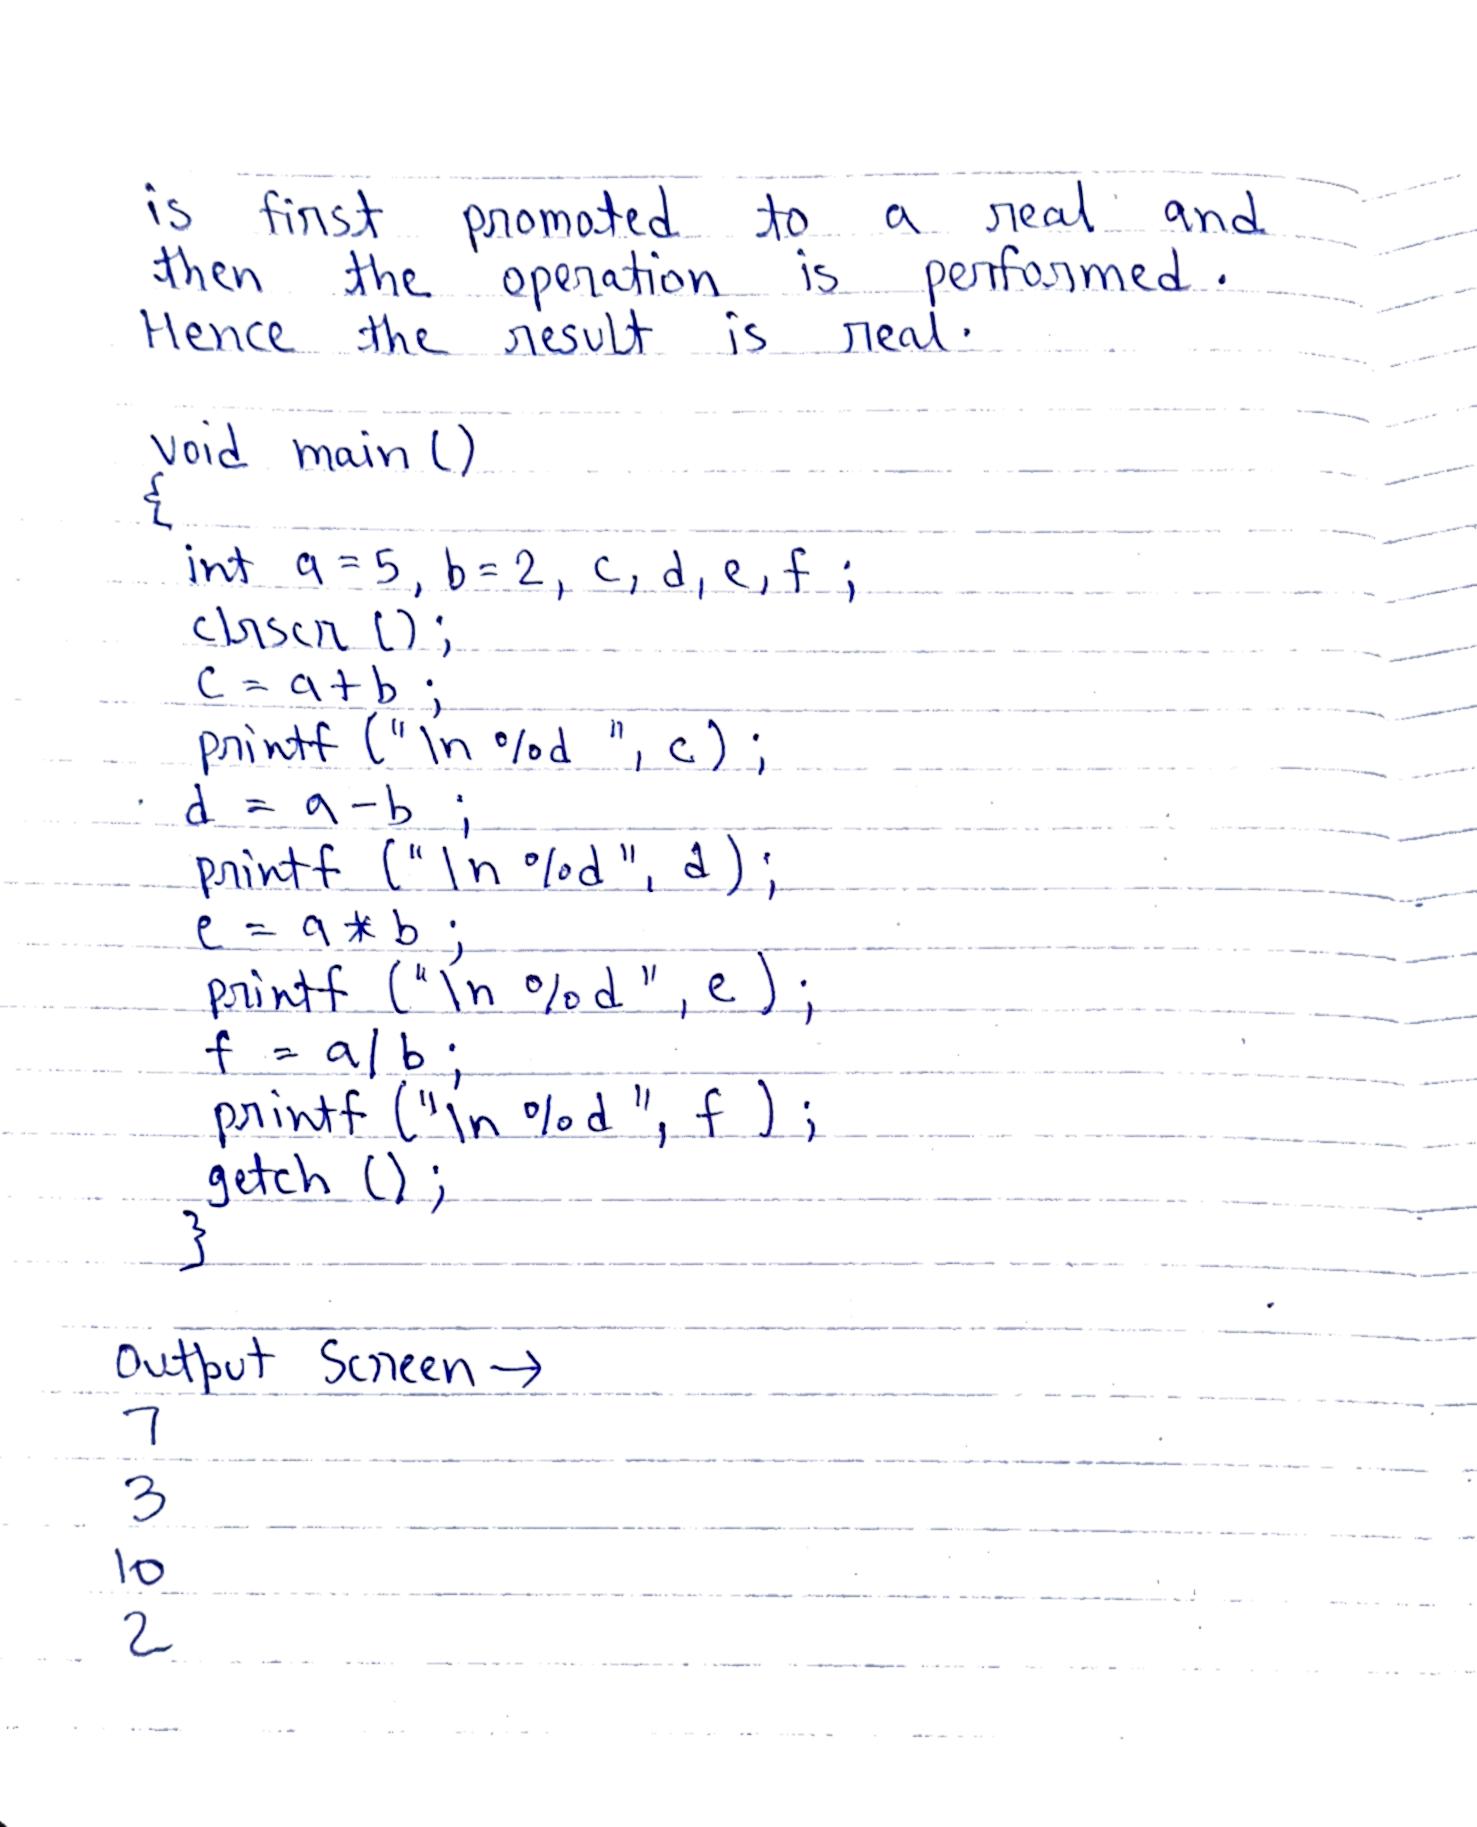 is first promoted to a real and
then the operation is performed.
Hence the result is real.
void main ()
{
int a = 5, b = 2, c, d, e, f ;
clrscr () ;
c = a + b ;
printf ("\n %d ", c) ;
d = a - b ;
printf ("\n %d", d) ;
e = a * b ;
printf ("\n %d", e ) ;
f = a / b ;
printf ("\n %d ", f ) ;
getch () ;
}
Output Screen →
7
3
10
2